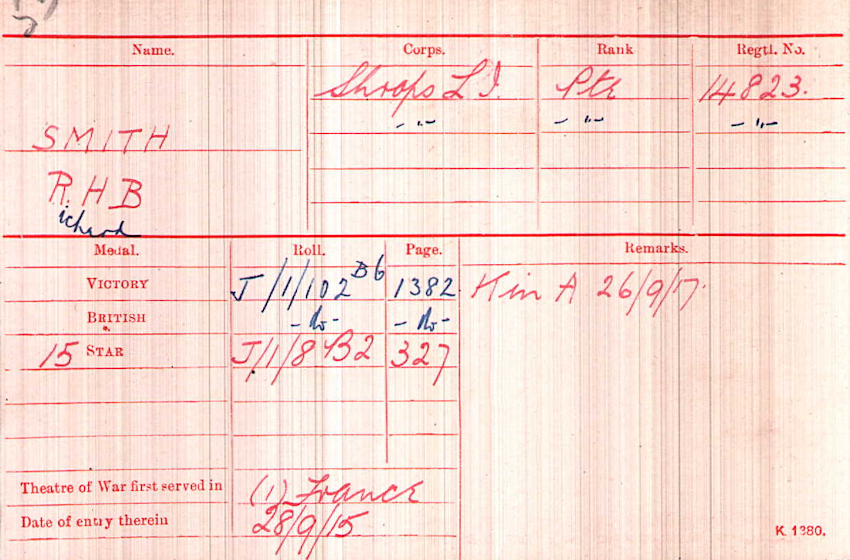 Name. Corps. Rank Regtl. No.
Shrops L I. Pte 14823.
- " - - " - - " -
SMITH
R. H B
ichard
Medal. Roll. Page. Remarks.
VICTORY J/1/102 B6 1382. K in A 26/9/17.
BRITISH - do - - do -
15 STAR J/1/8 B2 327
Theatre of War first served in (1) France
Date of entry therein 28/9/15.
K. 1380.